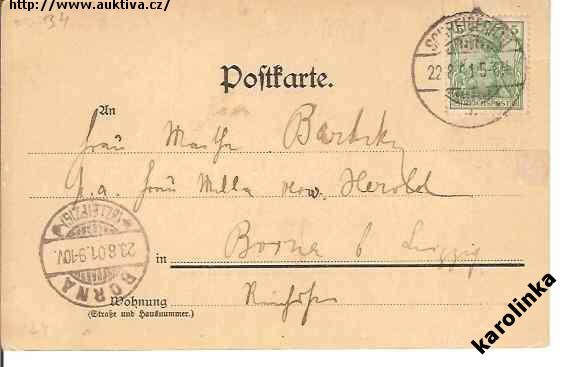 http://www.auktiva.cz/
34
Postkarte.
An
Frau Martha Bartzky
p.a. Frau Milla verw. Herold
in Borna b Leipzig
Wohnung
(Straße und Hausnummer.)
22.8.01.5-6
REICHSPOST
(BZ.LEIPZIG)
23.8.01.9-10V.
BORNA
karolinka